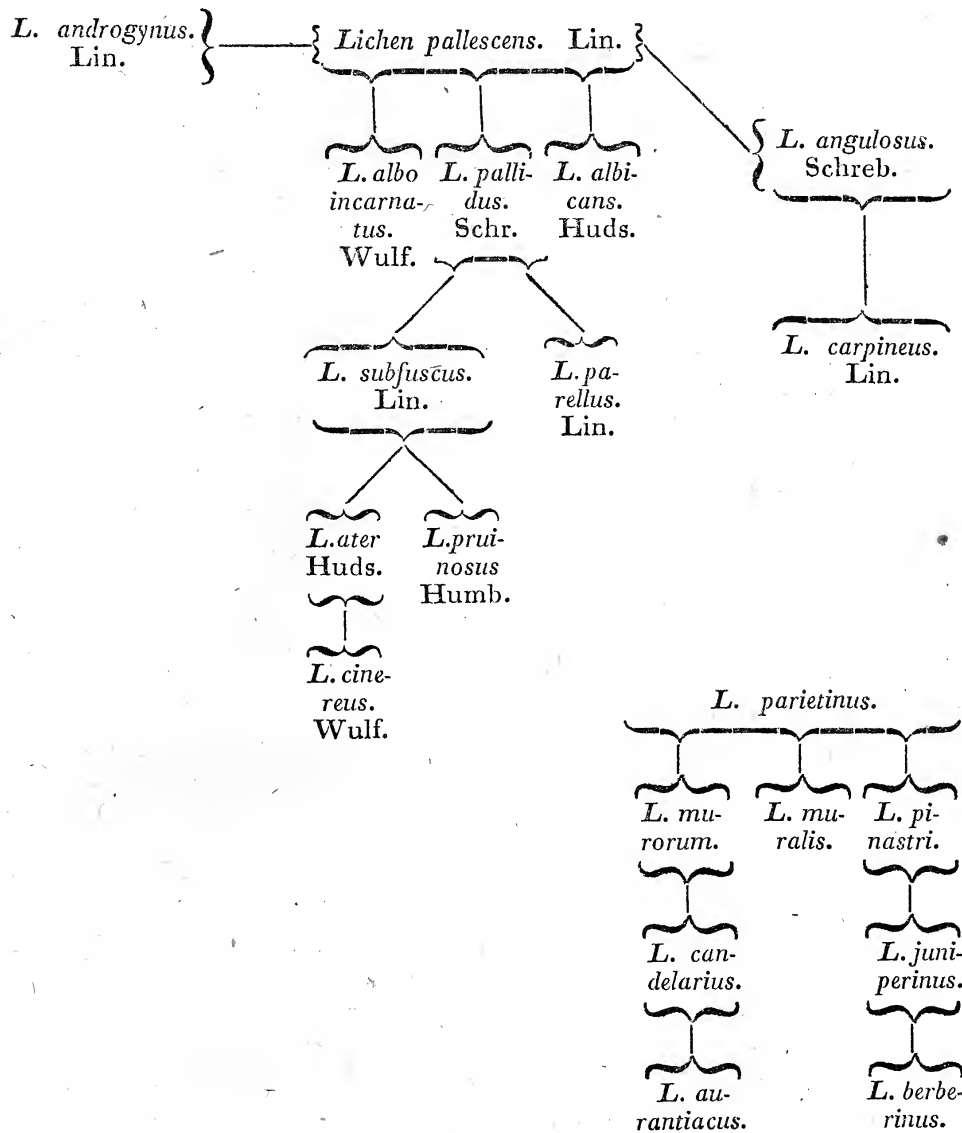 L. androgynus.
Lin.
Lichen pallescens. Lin.
L. angulosus.
Schreb.
L. albo
incarna-
tus.
Wulf.
L. palli-
dus.
Schr.
L. albi-
cans.
Huds.
L. carpineus.
Lin.
L. subfuscus.
Lin.
L. pa-
rellus.
Lin.
L. ater
Huds.
L. prui-
nosus
Humb.
L. cine-
reus.
Wulf.
L. parietinus.
L. mu-
rorum.
L. mu-
ralis.
L. pi-
nastri.
L. can-
delarius.
L. juni-
perinus.
L. au-
rantiacus.
L. berbe-
rinus.